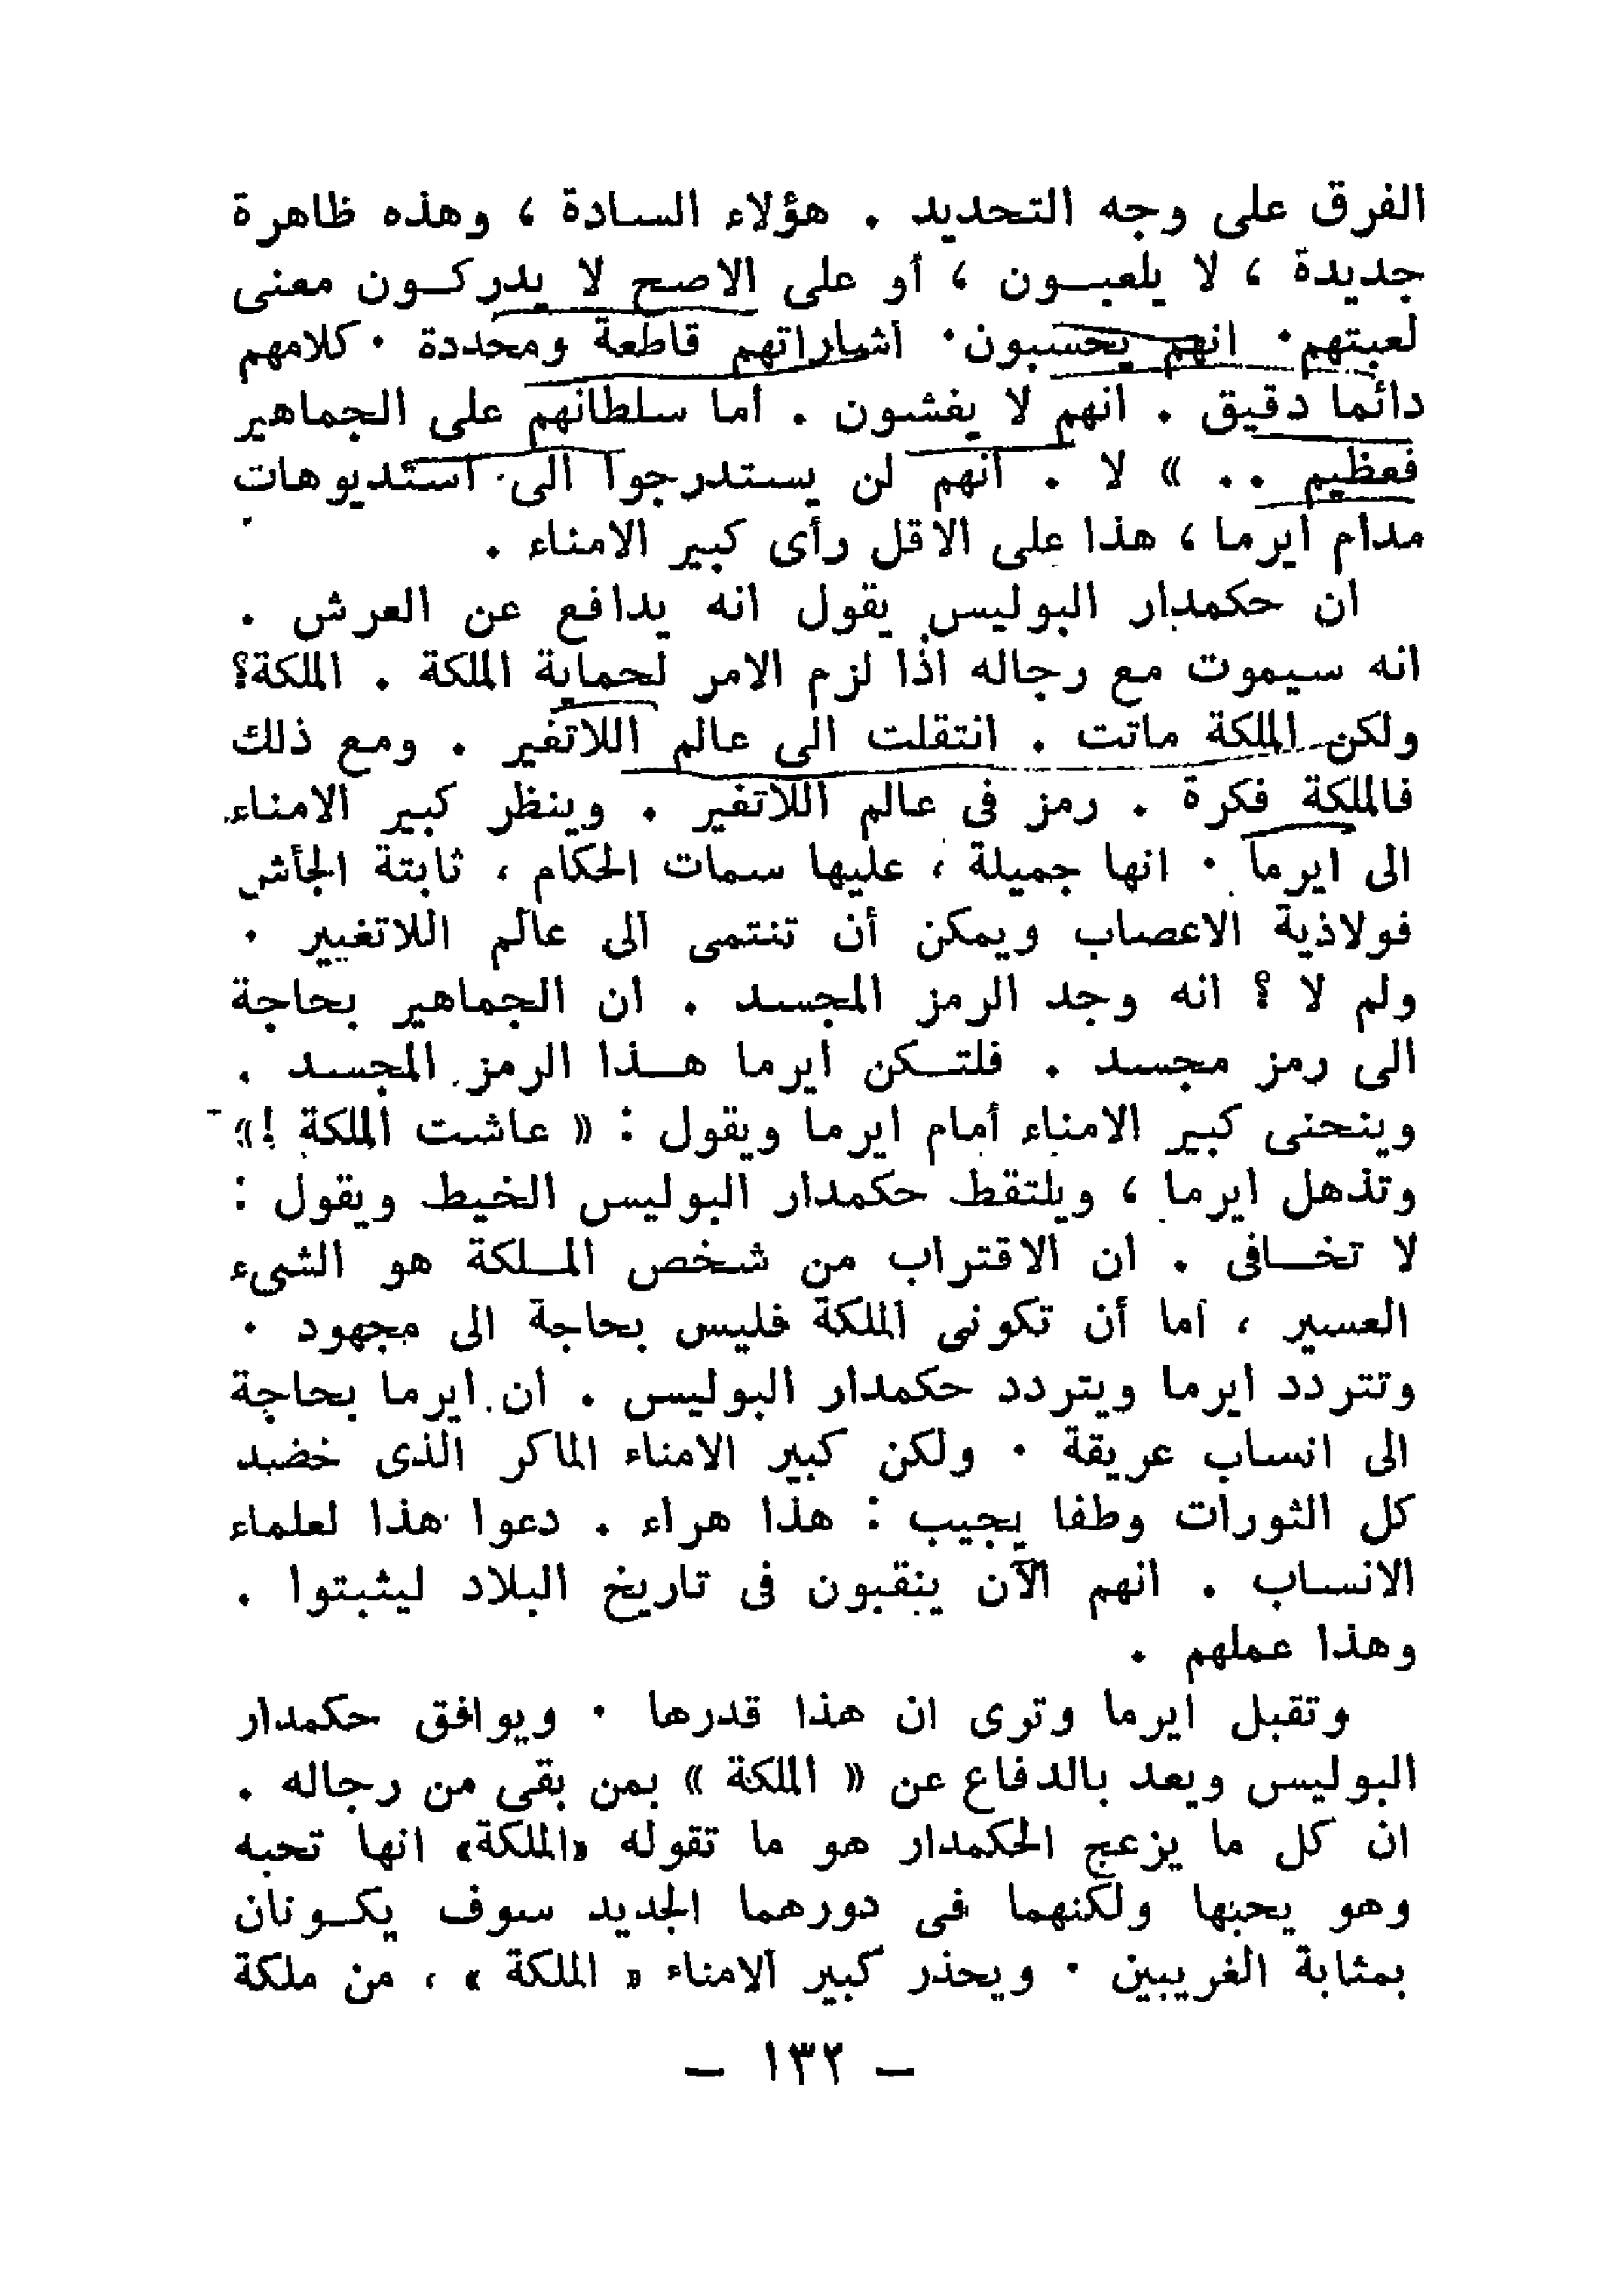 الفرق على وجه التحديد . هؤلاء السادة ، وهذه ظاهرة
جديدة ، لا يلعبون ، أو على الاصح لا يدركون معنى
لعبتهم . انهم يحسبون . اشاراتهم قاطعة ومحددة . كلامهم
دائما دقيق . انهم لا يغشون . اما سلطانهم على الجماهير
فعظيم .. » لا . انهم لن يستدرجوا الى استديوهات
مدام ايرما ، هذا على الاقل رأى كبير الامناء .
ان حكمدار البوليس يقول انه يدافع عن العرش .
انه سيموت مع رجاله اذا لزم الامر لحماية الملكة . الملكة؟
ولكن الملكة ماتت . انتقلت الى عالم اللاتغير . ومع ذلك
فالملكة فكرة . رمز فى عالم اللاتغير . وينظر كبير الامناء
الى ايرما . انها جميلة ، عليها سمات الحكام ، ثابتة الجأش
فولاذية الاعصاب ويمكن أن تنتمى الى عالم اللاتغيير .
ولم لا ؟ انه وجد الرمز المجسد . ان الجماهير بحاجة
الى رمز مجسد . فلتكن ايرما هذا الرمز المجسد .
وينحنى كبير الامناء أمام ايرما ويقول : « عاشت الملكة !»
وتذهل ايرما ، ويلتقط حكمدار البوليس الخيط ويقول :
لا تخافى . ان الاقتراب من شخص الملكة هو الشىء
العسير ، اما أن تكونى الملكة فليس بحاجة الى مجهود .
وتتردد ايرما ويتردد حكمدار البوليس . ان ايرما بحاجة
الى انساب عريقة . ولكن كبير الامناء الماكر الذى خضبد
كل الثورات وطفا يجيب : هذا هراء . دعوا هذا لعلماء
الانساب . انهم الآن ينقبون فى تاريخ البلاد ليثبتوا .
وهذا عملهم .
وتقبل ايرما وترى ان هذا قدرها . ويوافق حكمدار
البوليس ويعد بالدفاع عن « الملكة » بمن بقى من رجاله .
ان كل ما يزعج الحكمدار هو ما تقوله «الملكة» انها تحبه
وهو يحبها ولكنهما فى دورهما الجديد سوف يكونان
بمثابة الغريبين . ويحذر كبير الامناء « الملكة » ، من ملكة
— ١٣٢ —